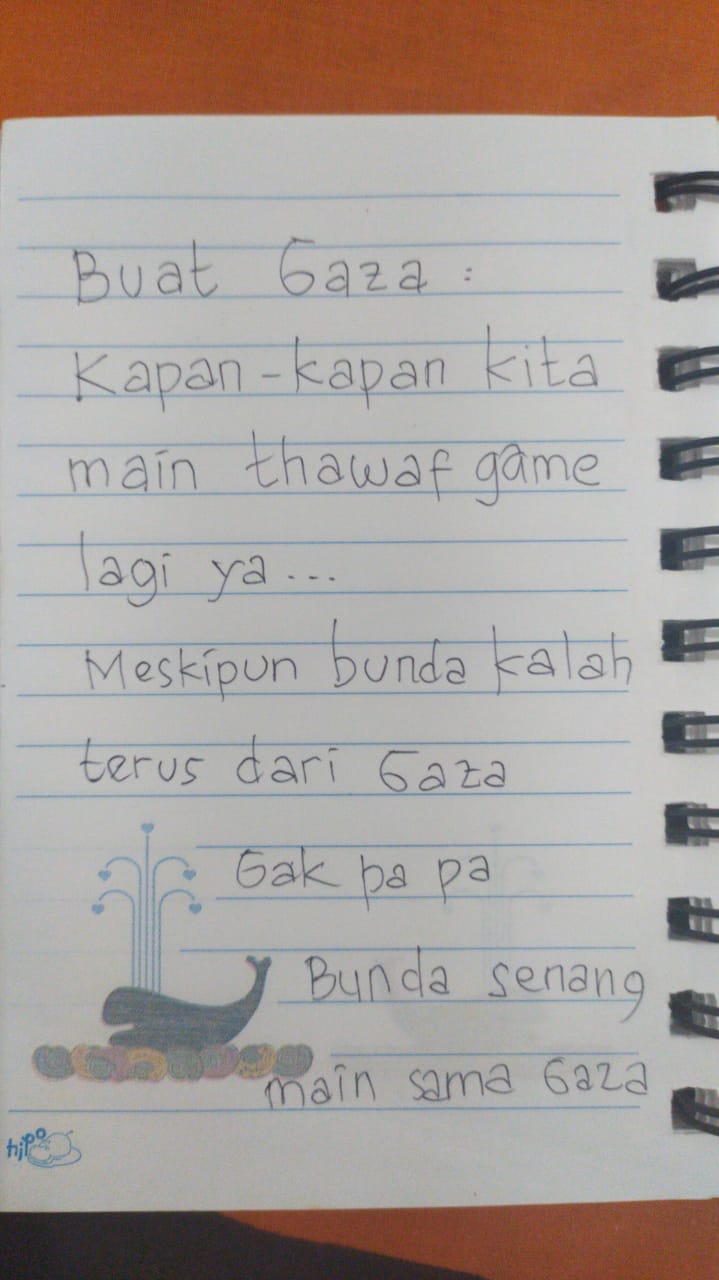 Buat Gaza :
Kapan-kapan kita
main thawaf game
lagi ya...
Meskipun bunda kalah
terus dari Gaza
Gak pa pa
Bunda senang
main sama Gaza
hipo